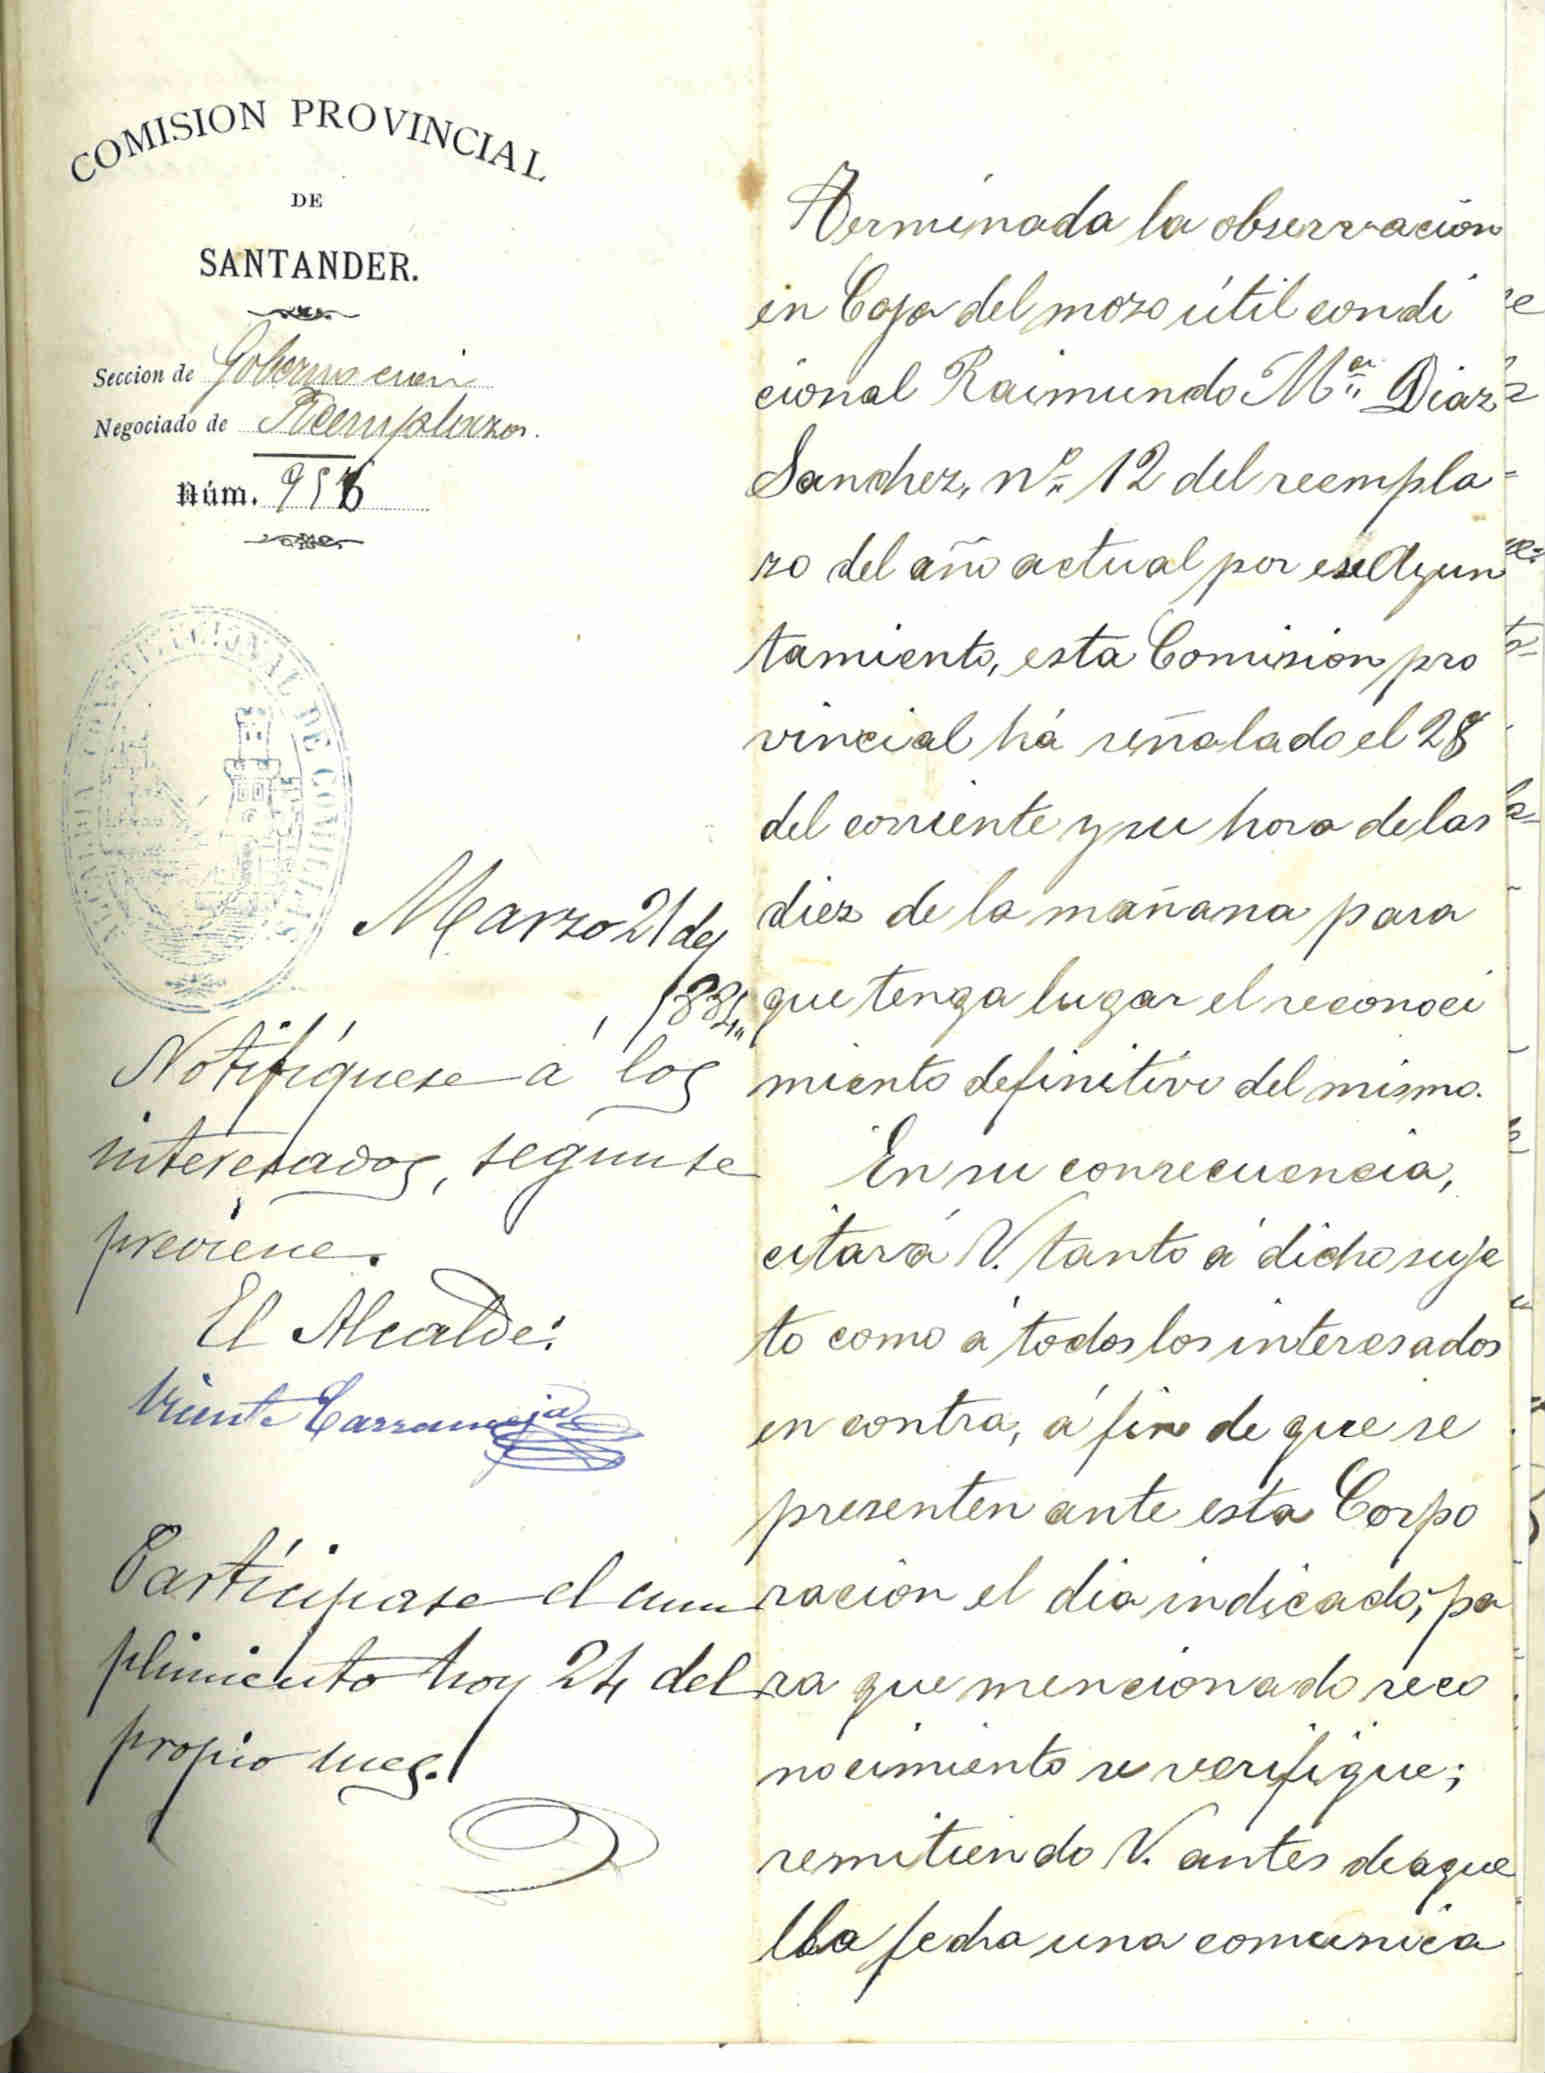 COMISION PROVINCIAL
DE
SANTANDER.
Seccion de Gobernacion
Negociado de Reemplazos.
Núm. 956
ALCALDIA CONSTITUCIONAL DE COMILLAS
Marzo 21 de
1884,,
Notifíquese á los
interesados, segun se
previene.
El Alcalde:
Vicente Carranceja
Partícipase el cum
plimiento hoy 24 del
propio mes.
Terminada la observacion
en Caja del mozo útil condi
cional Raimundo Mª Diaz
Sanchez, nº 12 del reempla
zo del año actual por ese Ayun
tamiento, esta Comision pro
vincial há señalado el 28
del corriente y su hora de las
diez de la mañana para
que tenga lugar el reconoci
miento definitivo del mismo.
En su consecuencia,
citará V. tanto á dicho suje
to como á todos los interesados
en contra, á fin de que se
presenten ante esta Corpo
racion el dia indicado, pa
ra que mencionado reco
nocimiento se verifique;
remitiendo V. antes de aque
lla fecha una comunica